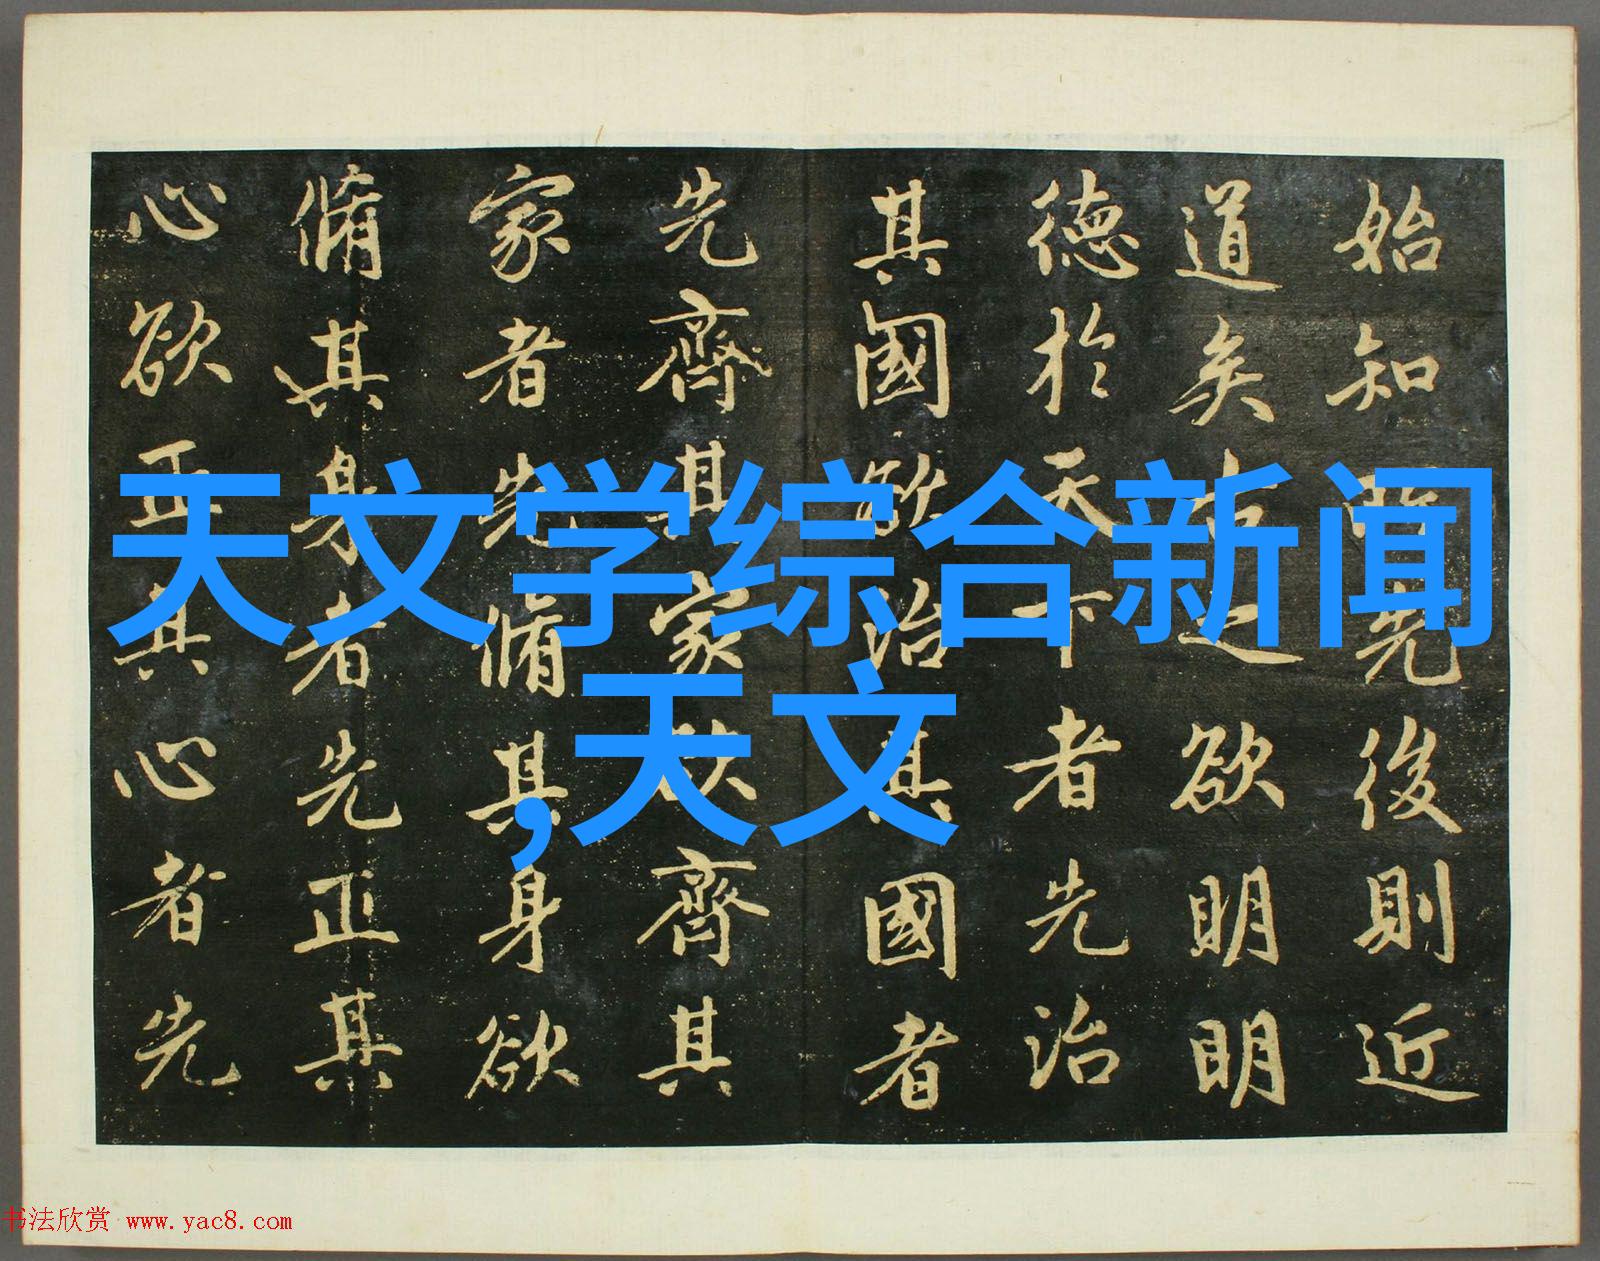 始知所先後則近
道矣古之欲明明
德於天下者先治
其國欲治其國者
先齊其家欲齊其
家者先脩其身欲
脩其身者先正其
心欲正其心者先
天文学综合新闻
,天文
书法欣赏 www.yac8.com